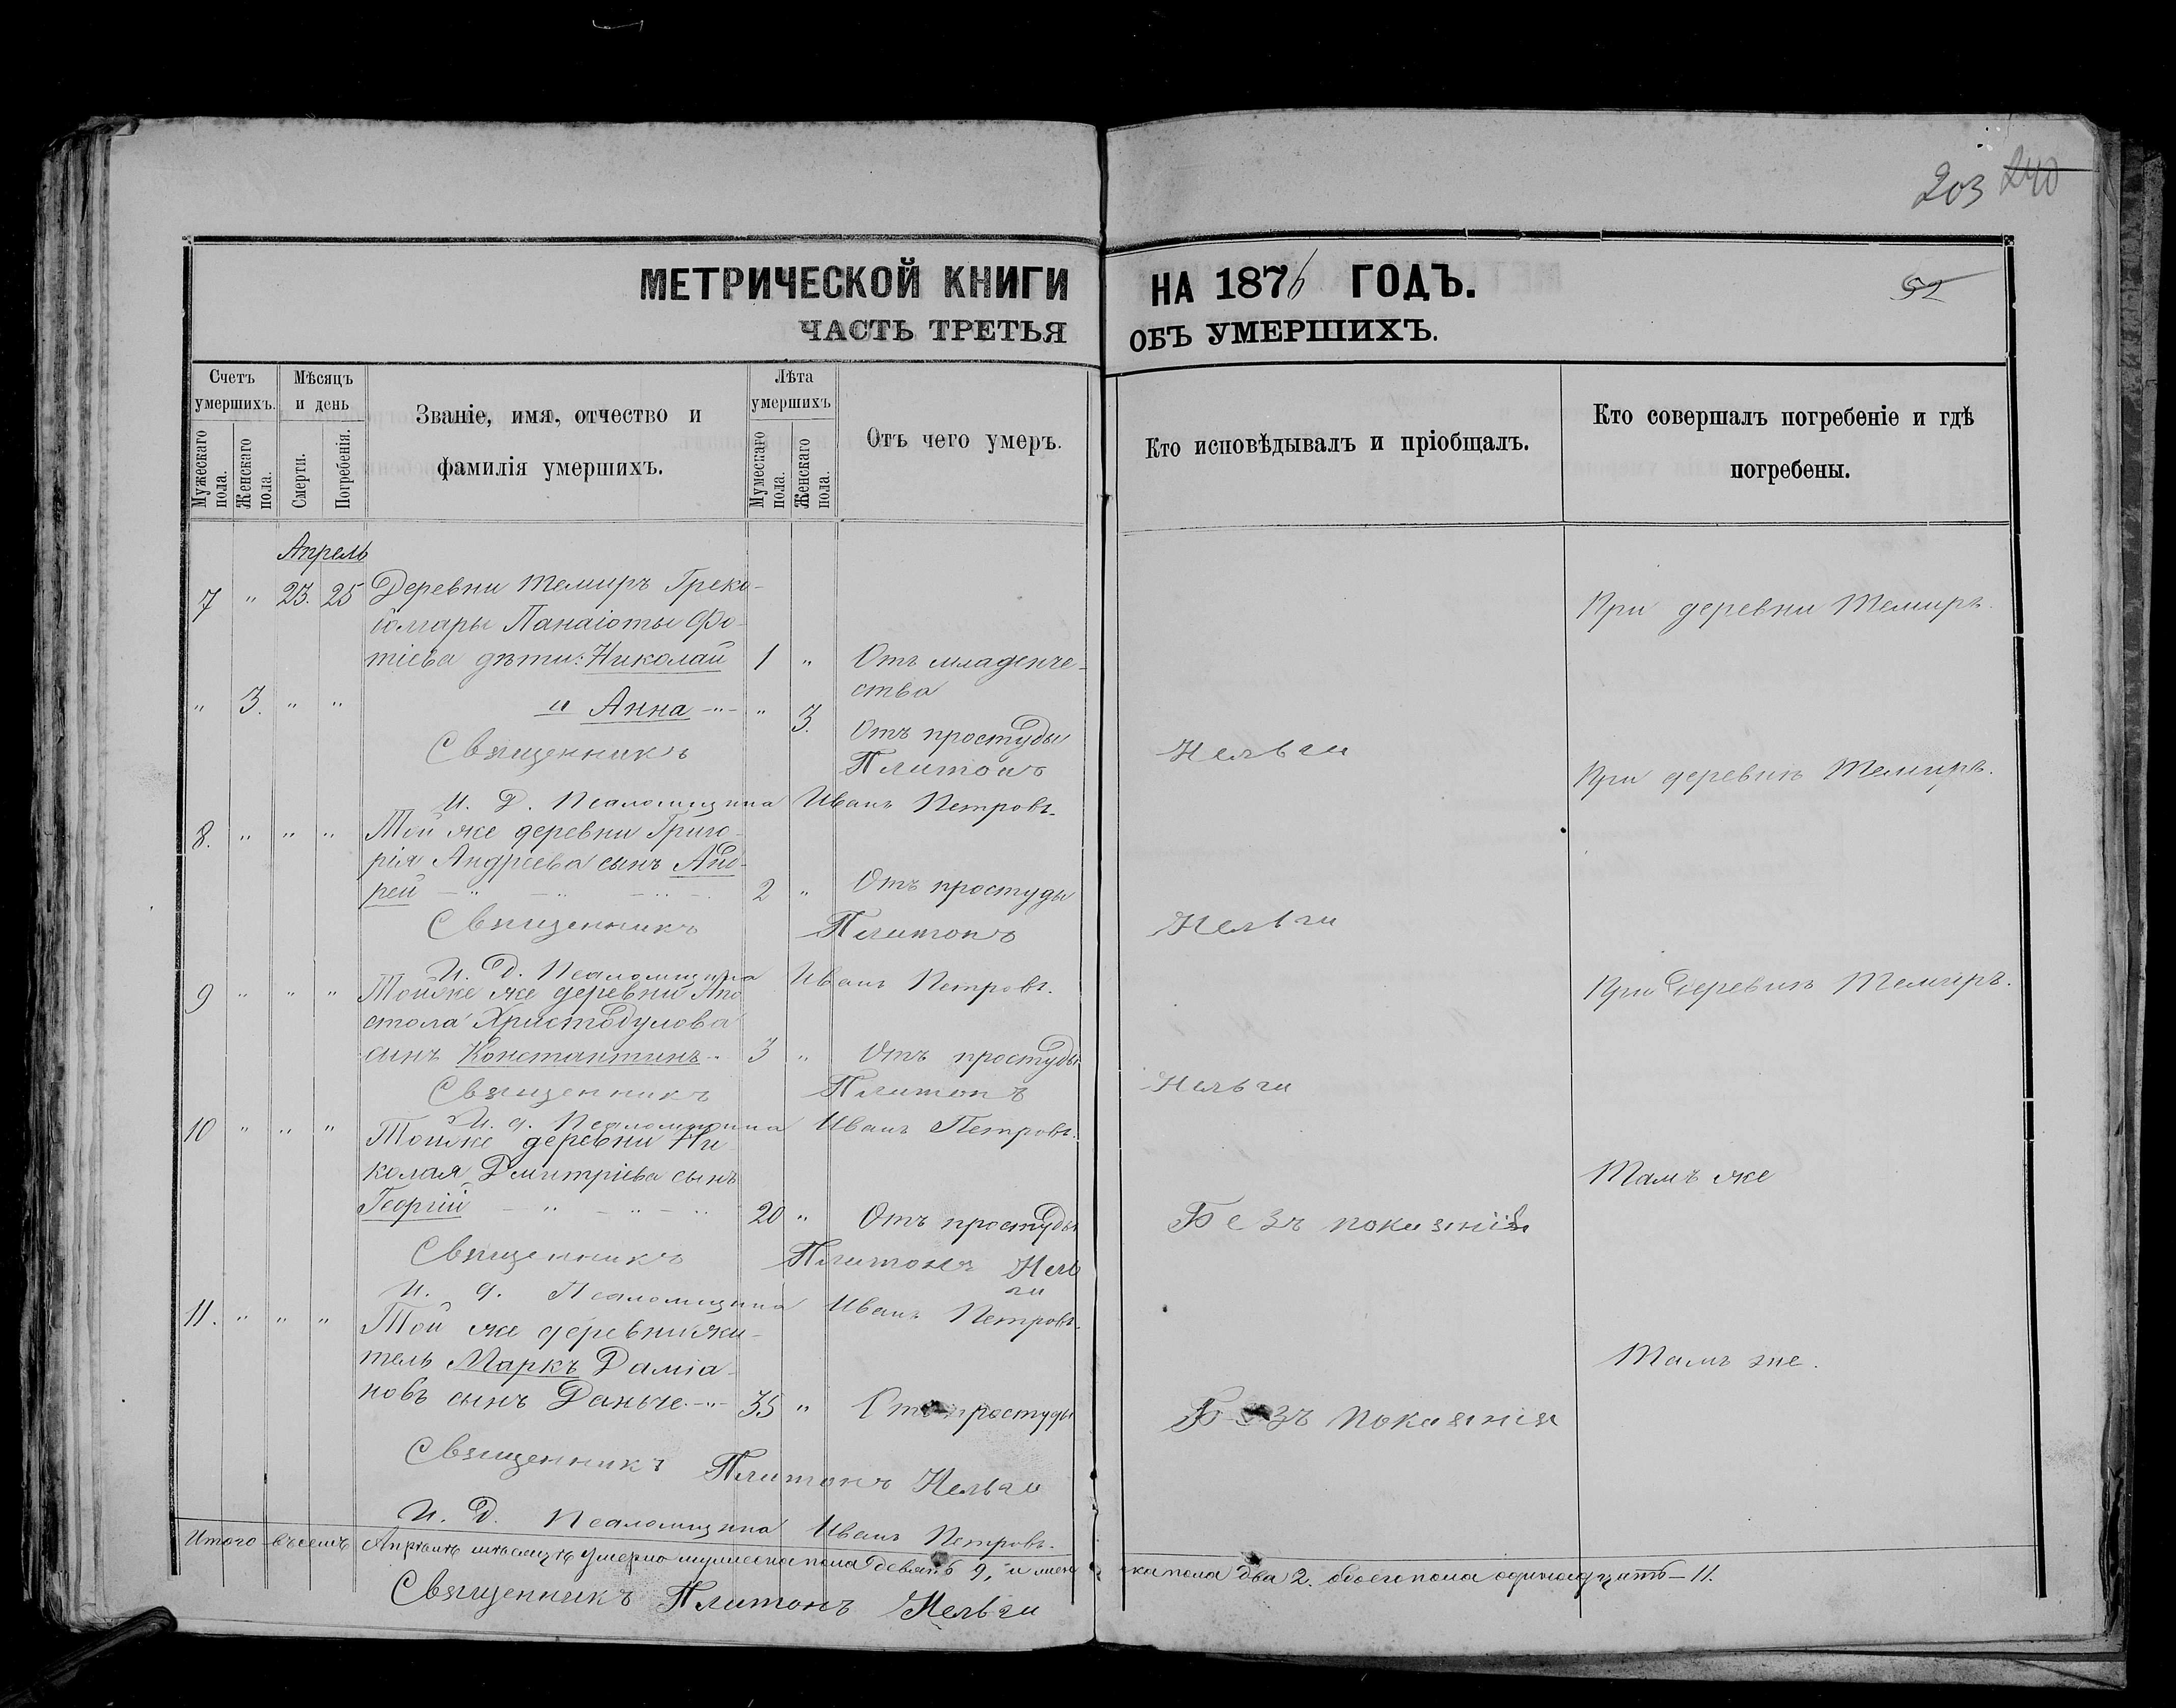 203 240
МЕТРИЧЕСКОЙ КНИГИ НА 1876 ГОДЪ.
52
ЧАСТЬ ТРЕТЬЯ ОБЪ УМЕРШИХЪ.
Счетъ умершихъ.
Мужескаго пола.
Женскаго пола.
Мѣсяцъ и день
Смерти.
Погребенія.
Званіе, имя, отчество и
фамилія умершихъ.
Лѣта умершихъ
Мужескаго пола.
Женскаго пола.
Отъ чего умеръ.
Кто исповѣдывалъ и пріобщалъ.
Кто совершалъ погребеніе и гдѣ
погребены.
Апрель
7 " 23. 25 Деревни Темиръ Греко- При деревни Темиръ.
Панаіоты Фо-
тіева дѣти: Николай 1 " Отъ младенче-
ства
" 3. " " и Анна -"- " 3. Отъ простуды
Священникъ Платонъ Нельги
При деревнѣ Темиръ.
И. Д. Псаломщика Иванъ Петровъ.
8. " " " Той же деревни Григо-
рія Андреева сынъ Анд-
рей - " - " - " - 2 " Отъ простуды
Священникъ Платонъ Нельги
И. Д. Псаломщика Иванъ Петровъ.
9 " " " Тойже же деревни Апо- При деревнѣ Темиръ.
стола Христодулова
сынъ Константинъ -" 3 " Отъ простуды
Священникъ Платонъ Нельги
И. д. Псаломщика Иванъ Петровъ.
10 " " " Тойже деревни Ни-
колая Дмитріева сынъ Тамъ же
Георгій - " - " - " 20 " Отъ простуды Безъ покаянія
Священникъ Платонъ Нель
ги
И. д. Псаломщика Иванъ Петровъ.
11. " " " Той же деревни жи-
тель Маркъ Даміа- Тамъ же.
новъ сынъ Даньче -"- 35 " Отъ простуды Безъ покаянія
Священникъ Платонъ Нельги
И. Д. Псаломщика Иванъ Петровъ.
Итого въ семъ Апрѣлѣ мѣсяцѣ умерло мужеска пола девять 9, и женска пола два 2. обоего пола одинадцать - 11.
Священникъ Платонъ Нельги